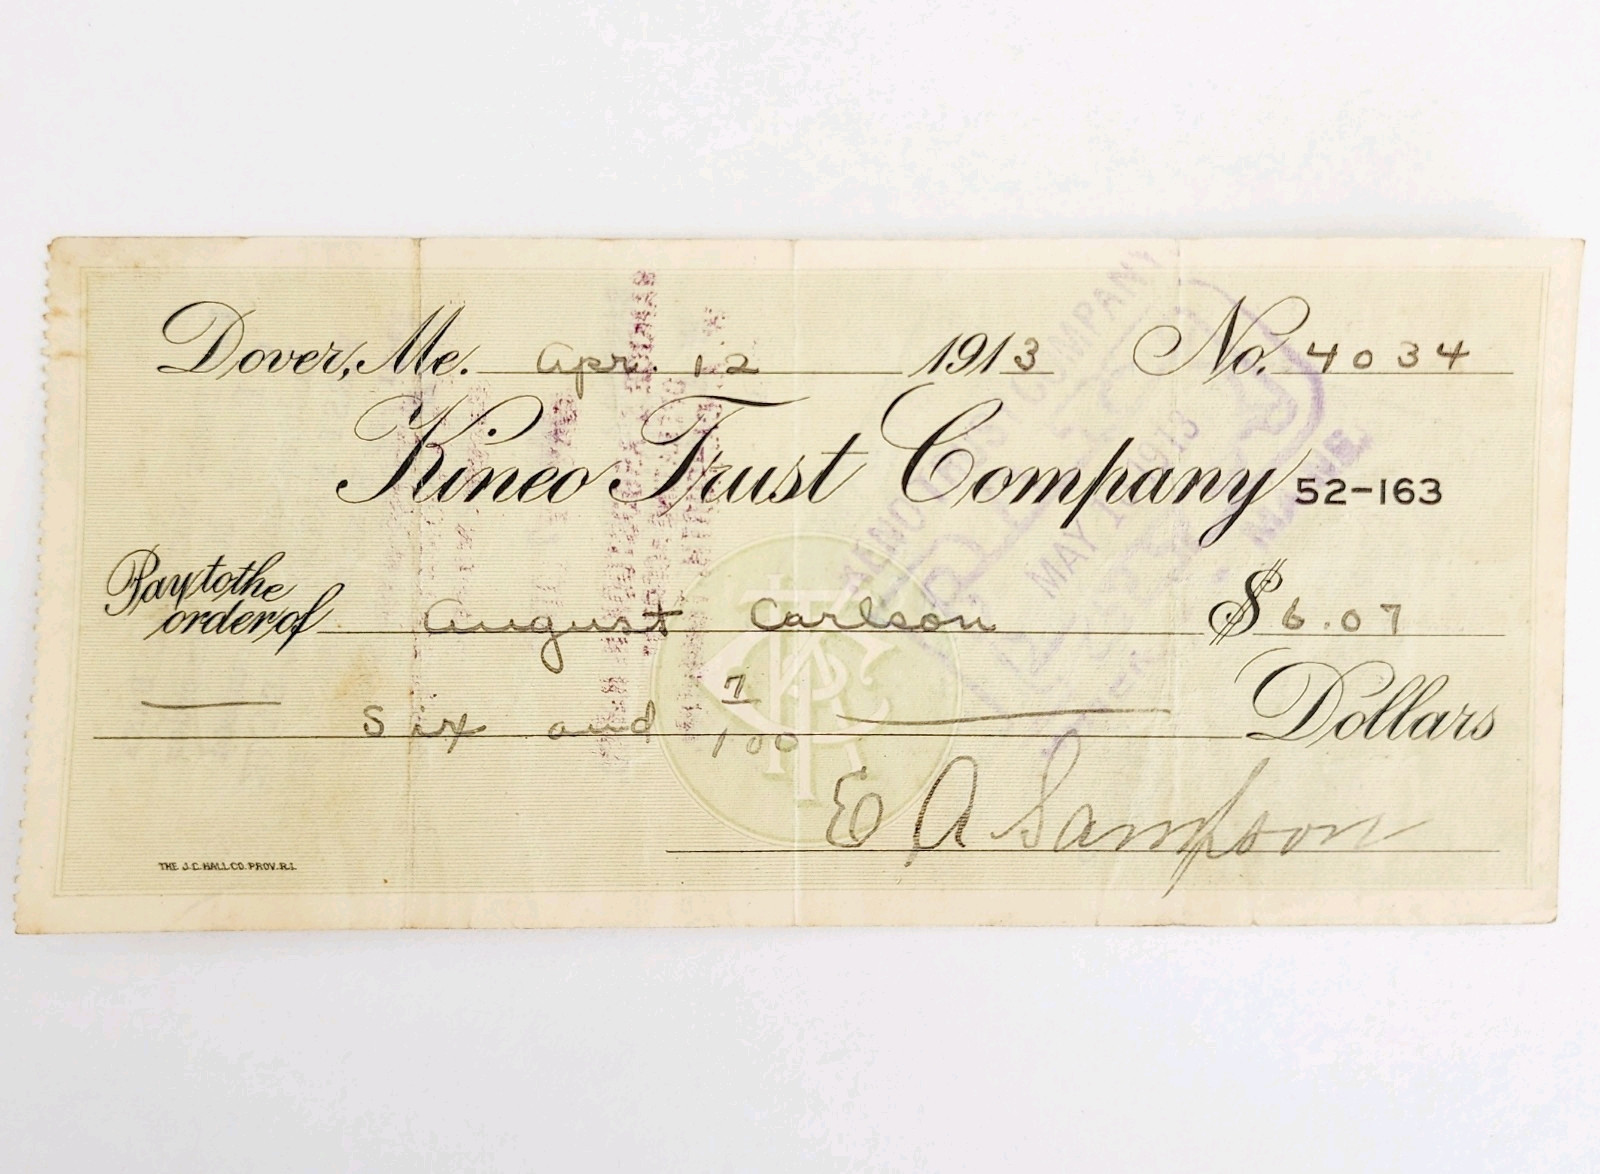 Dover, Me. Apr. 12 1913 No. 4034
Kineo Trust Company 52-163
Pay to the order of August Carlson $6.07
Six and 7/100 Dollars
E A Sampson
THE J.C. HALL CO. PROV. R.I.
COMPANY
MAY 1913
MAINE